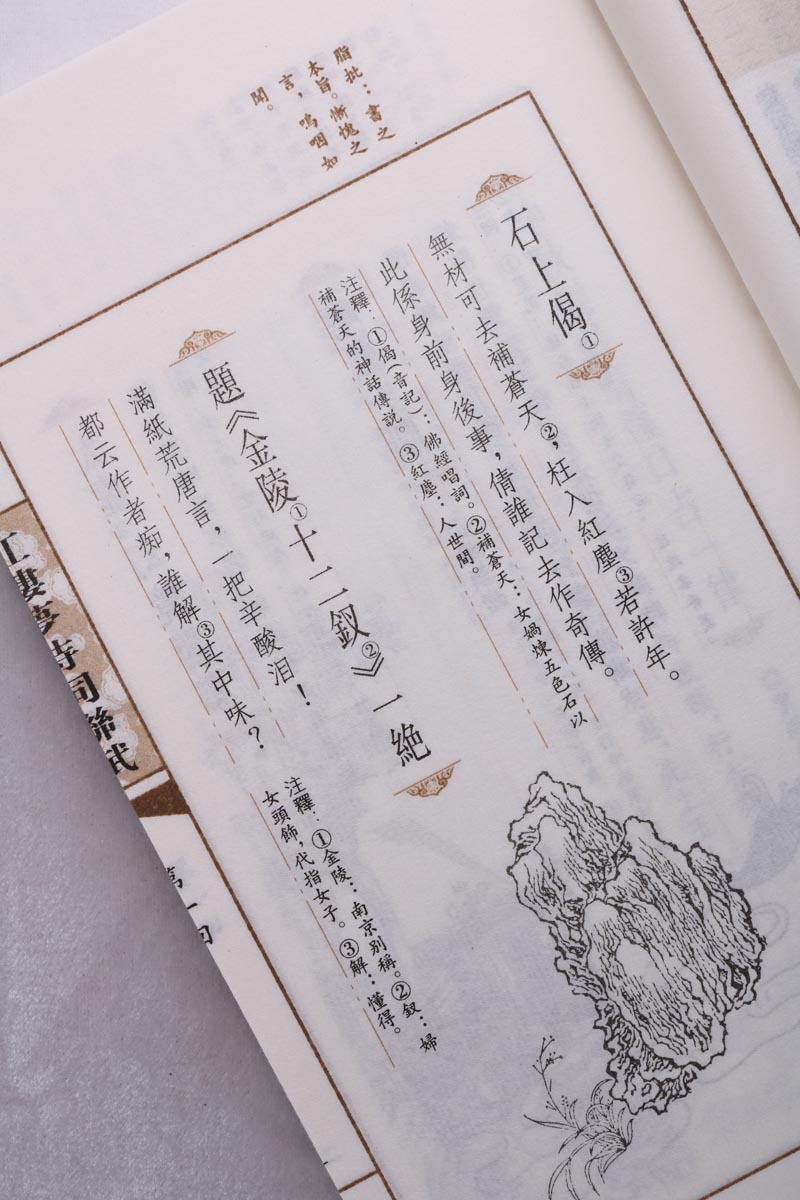 脂批：書之
本旨。慚愧之
言，嗚咽如
聞。
石上偈①
無材可去補蒼天②，枉入紅塵③若許年。
此係身前身後事，倩誰記去作奇傳。
注釋：①偈（音記）：佛經唱詞。②補蒼天：女媧煉五色石以
補蒼天的神話傳說。③紅塵：人世間。
題《金陵①十二釵②》一絶
滿紙荒唐言，一把辛酸泪！
都云作者痴，誰解③其中味？
注釋：①金陵：南京别稱。②釵：婦
女頭飾，代指女子。③解：懂得。
紅樓夢詩詞聯賦
第一回